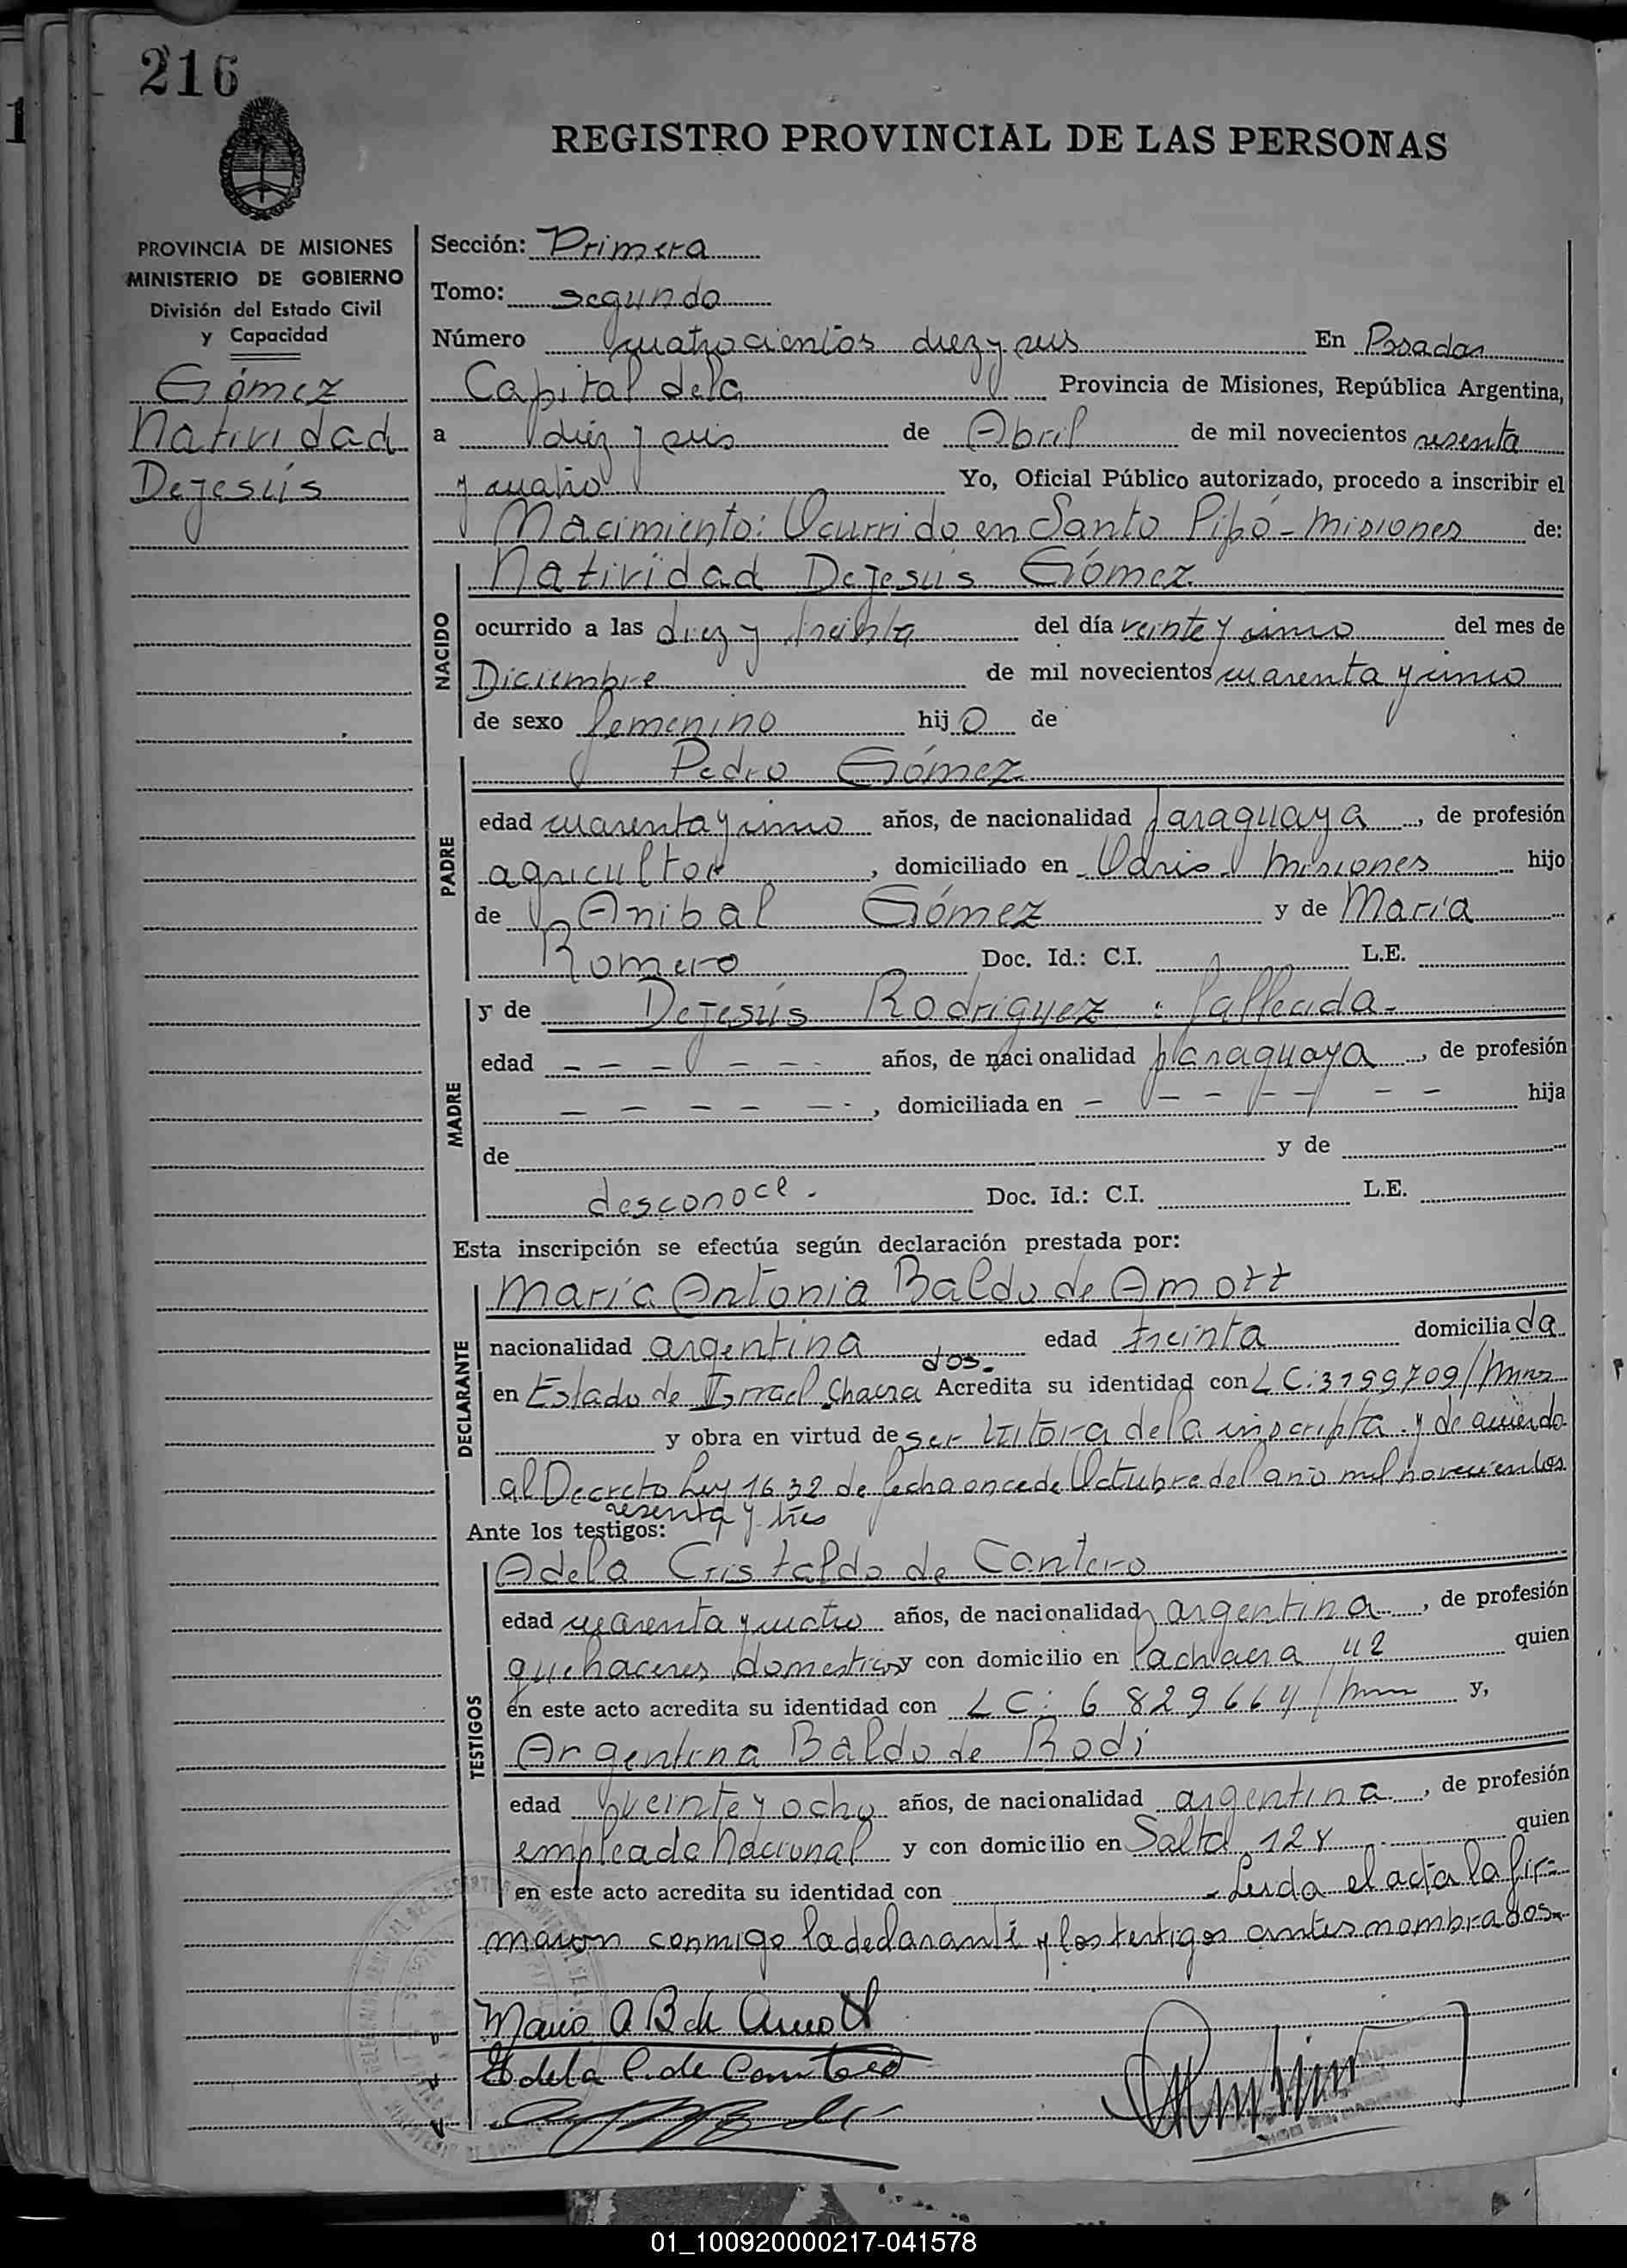 216
REGISTRO PROVINCIAL DE LAS PERSONAS
PROVINCIA DE MISIONES
MINISTERIO DE GOBIERNO
División del Estado Civil
y Capacidad
Gómez
Natividad
Dejesús
Sección: Primera
Tomo: segundo
Número cuatrocientos diez y seis En Posadas
Capital dela Provincia de Misiones, República Argentina,
a diez y seis de Abril de mil novecientos sesenta
y cuatro Yo, Oficial Público autorizado, procedo a inscribir el
Nacimiento: Ocurrido en Santo Pipó - Misiones de:
NACIDO
Natividad Dejesús Gómez
ocurrido a las diez y treinta del día veinte y cinco del mes de
Diciembre de mil novecientos cuarenta y cinco
de sexo femenino hijo de
PADRE
Pedro Gómez
edad cuarenta y cinco años, de nacionalidad paraguaya, de profesión
agricultor, domiciliado en Misiones hijo
de Anibal Gómez y de María
Romero Doc. Id.: C.I. L.E.
MADRE
y de Dejesús Rodriguez: fallecida.-
edad - - - - - años, de nacionalidad paraguaya, de profesión
- - - - - -, domiciliada en - - - - - - - hija
de y de
desconoce. Doc. Id.: C.I. L.E.
Esta inscripción se efectúa según declaración prestada por:
DECLARANTE
María Antonia Baldo de Amott
nacionalidad argentina edad treinta domiciliada
dos.
en Estado de Isrrael Chacra Acredita su identidad con L C: 3199709/Mnes
y obra en virtud de ser tutora dela inscripta y de acuerdo
al Decreto Ley 1632 de fecha once de Octubre del año mil novecientos
sesenta y tres
Ante los testigos:
TESTIGOS
Adela Cristaldo de Cantero
edad cuarenta y cuatro años, de nacionalidad argentina, de profesión
quehaceres domesticos y con domicilio en Chacra 42 quien
en este acto acredita su identidad con L C: 6829664/Mnes y,
Argentina Baldo de Rodi
edad veinte y ocho años, de nacionalidad argentina, de profesión
empleada Nacional y con domicilio en Salta quien
en este acto acredita su identidad con - Leida el acta la fir=
maron conmigo la declarante y los testigos antes nombrados.-
Maria A B de Amott
Adela C. de Cantero
01_100920000217-041578